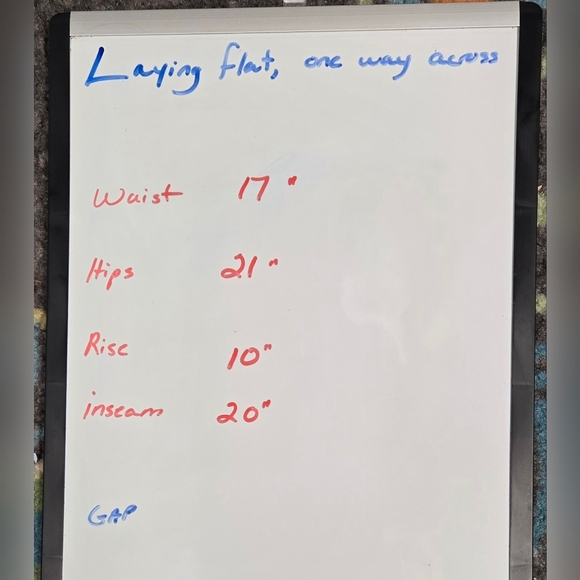 Laying flat, one way across
Waist 17"
Hips 21"
Rise 10"
inseam 20"
GAP